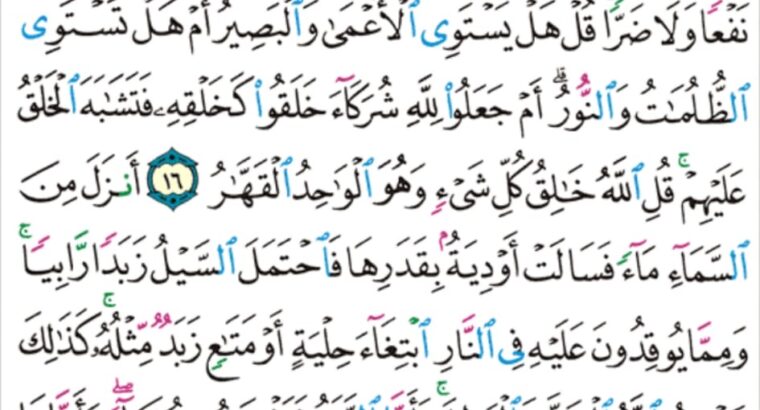 نَفْعًا وَلَا ضَرًّا قُلْ هَلْ يَسْتَوِى الْأَعْمَىٰ وَالْبَصِيرُ أَمْ هَلْ تَسْتَوِى
الظُّلُمَاتُ وَالنُّورُ ۗ أَمْ جَعَلُوا لِلَّهِ شُرَكَآءَ خَلَقُوا كَخَلْقِهِۦ فَتَشَابَهَ الْخَلْقُ
عَلَيْهِمْ ۚ قُلِ اللَّهُ خَالِقُ كُلِّ شَىْءٍ وَهُوَ الْوَاحِدُ الْقَهَّارُ ١٦ أَنزَلَ مِنَ
السَّمَآءِ مَآءً فَسَالَتْ أَوْدِيَةٌۢ بِقَدَرِهَا فَاحْتَمَلَ السَّيْلُ زَبَدًا رَّابِيًا ۚ
وَمِمَّا يُوقِدُونَ عَلَيْهِ فِى النَّارِ ابْتِغَآءَ حِلْيَةٍ أَوْ مَتَاعٍ زَبَدٌ مِّثْلُهُۥ ۚ كَذَٰلِكَ